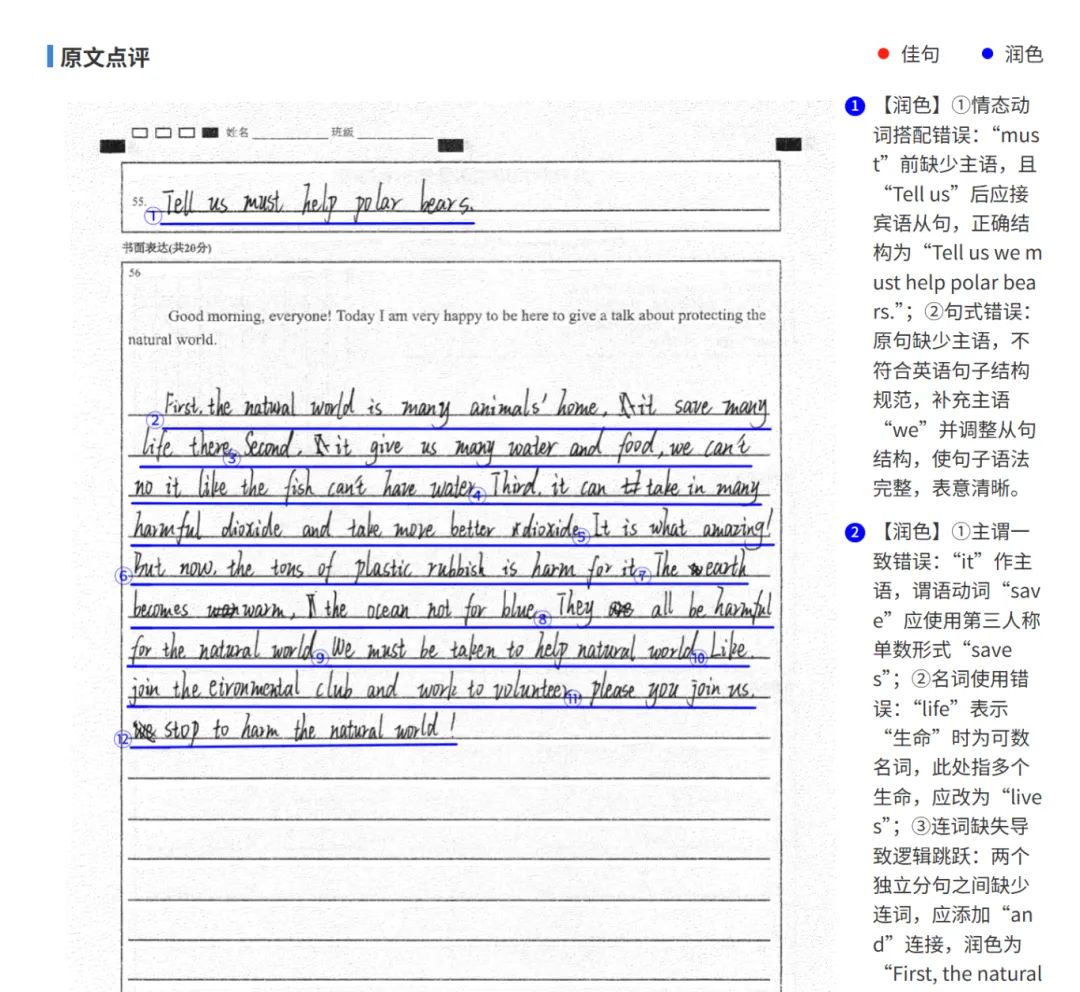 原文点评
佳句
润色
姓名 班级
55.
① Tell us must help polar bears.
书面表达(共20分)
56
Good morning, everyone! Today I am very happy to be here to give a talk about protecting the
natural world.
② First, the natural world is many animals' home, it save many
life there. ③ Second, it give us many water and food, we can't
no it like the fish can't have water. ④ Third, it can take in many
harmful dioxide and take more better dioxide. ⑤ It is what amazing!
⑥ But now, the tons of plastic rubbish is harm for it. ⑦ The earth
becomes warm, the ocean not for blue. ⑧ They all be harmful
for the natural world. ⑨ We must be taken to help natural world. ⑩ Like.
join the eironmental club and work to volunteer. ⑪ please you join us.
⑫ stop to harm the natural world!
1 【润色】①情态动
词搭配错误：“mus
t”前缺少主语，且
“Tell us”后应接
宾语从句，正确结
构为“Tell us we m
ust help polar bea
rs.”；②句式错误：
原句缺少主语，不
符合英语句子结构
规范，补充主语
“we”并调整从句
结构，使句子语法
完整，表意清晰。
2 【润色】①主谓一
致错误：“it”作主
语，谓语动词“sav
e”应使用第三人称
单数形式“save
s”；②名词使用错
误：“life”表示
“生命”时为可数
名词，此处指多个
生命，应改为“live
s”；③连词缺失导
致逻辑跳跃：两个
独立分句之间缺少
连词，应添加“an
d”连接，润色为
“First, the natural